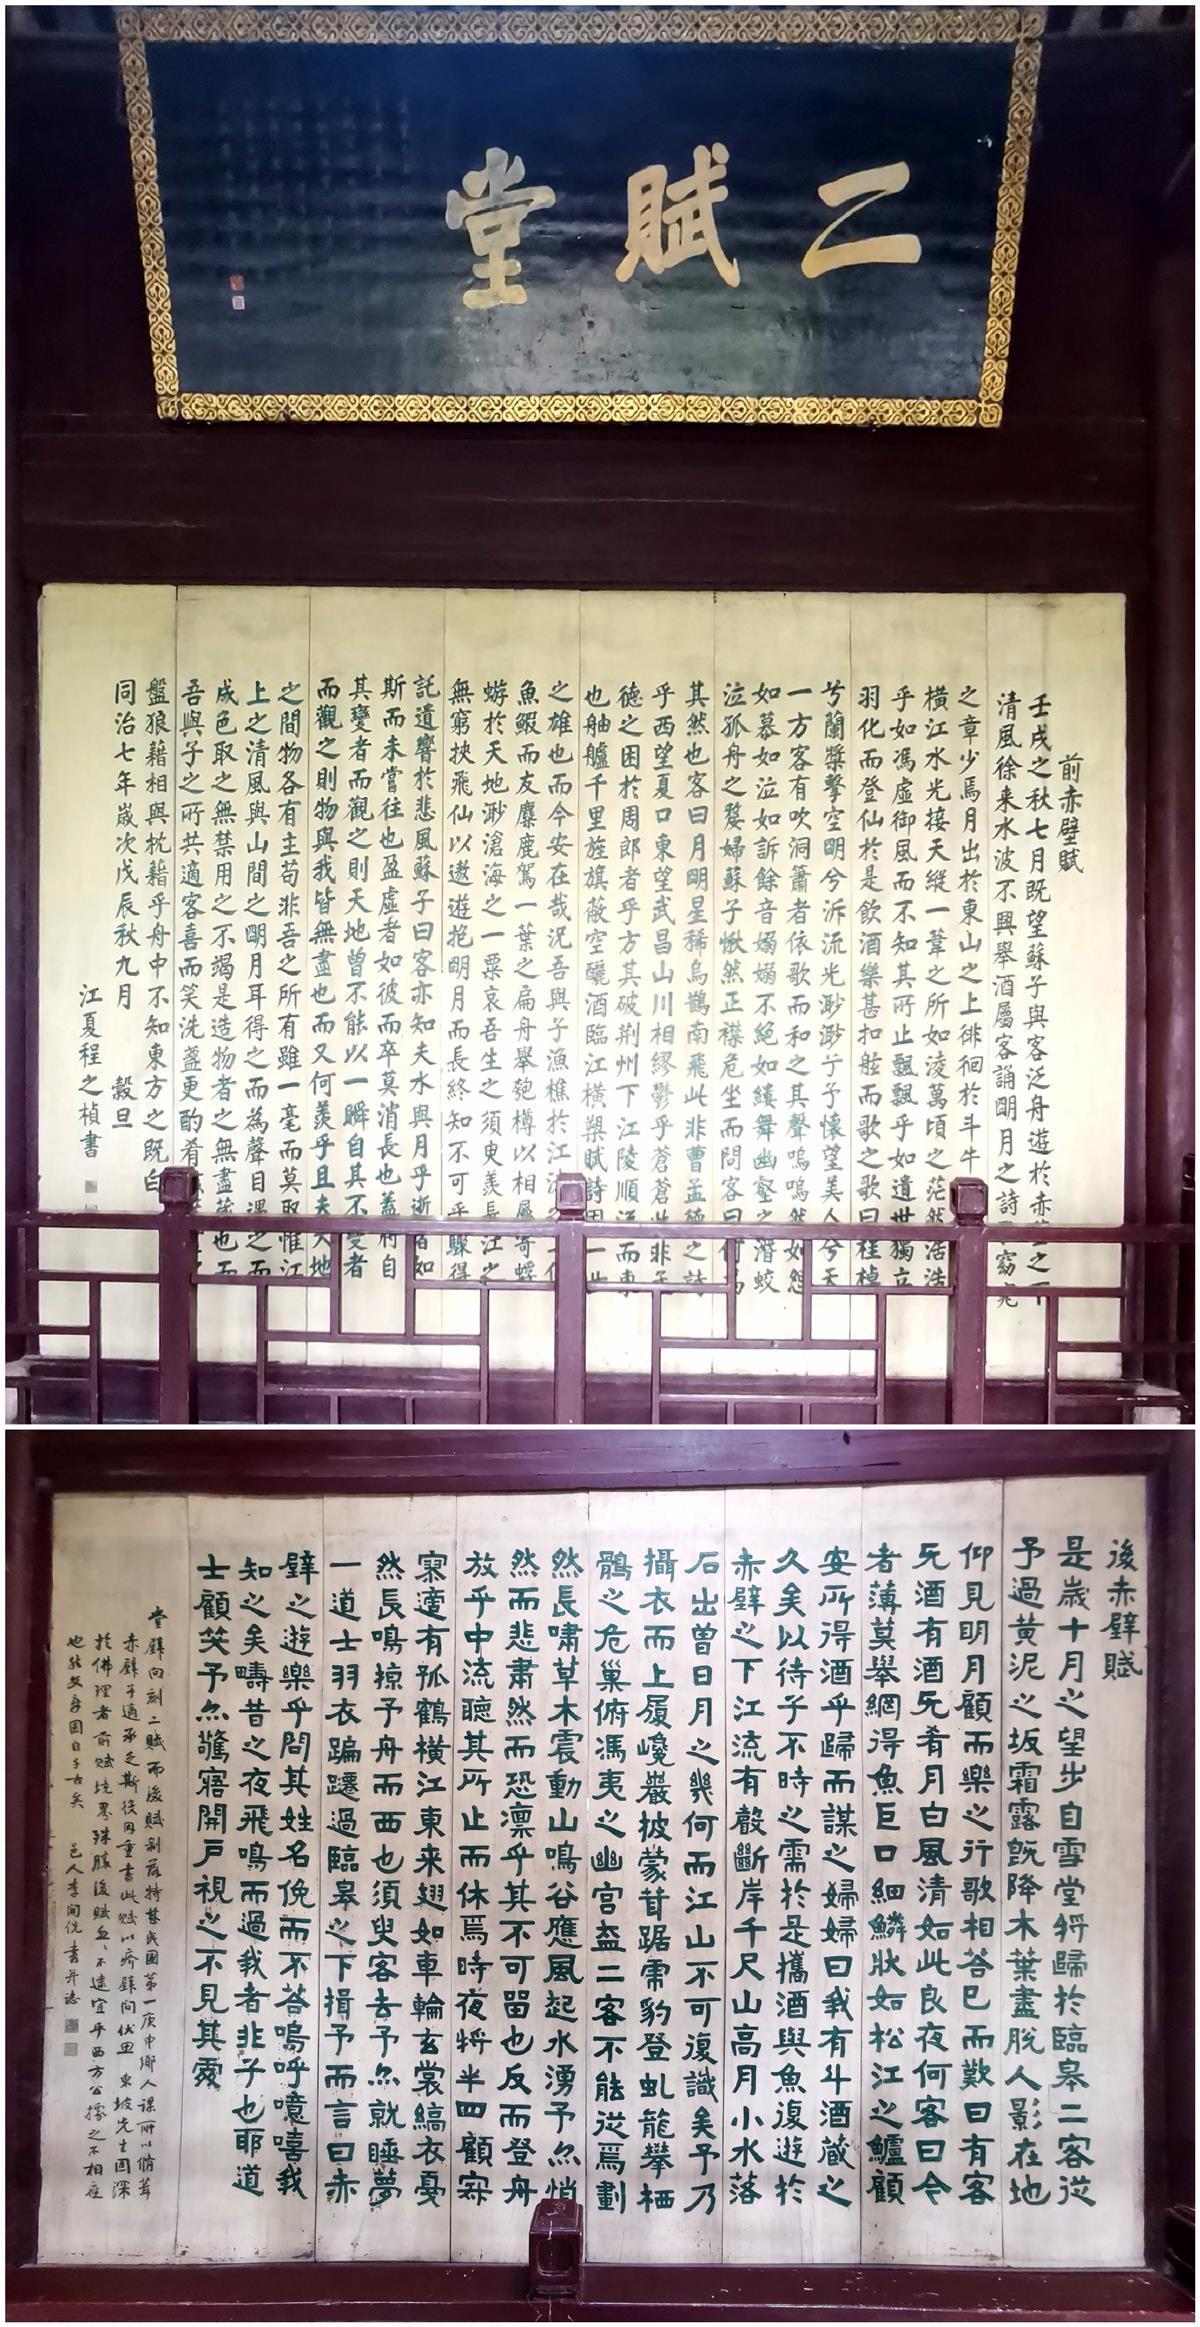 二賦堂
前赤壁賦
壬戌之秋七月既望蘇子與客泛舟遊於赤壁之下
清風徐来水波不興舉酒屬客誦明月之詩歌窈窕
之章少焉月出於東山之上徘徊於斗牛
橫江水光接天縱一葦之所如淩萬頃之茫然浩浩
乎如馮虛御風而不知其所止飄飄乎如遺世獨立
羽化而登仙於是飲酒樂甚扣舷而歌之歌曰桂棹
兮蘭槳擊空明兮泝流光渺渺兮予懷望美人兮天
一方客有吹洞簫者依歌而和之其聲嗚嗚然如怨
如慕如泣如訴餘音嫋嫋不絕如縷舞幽壑之潛蛟
泣孤舟之嫠婦蘇子愀然正襟危坐而問客曰何為
其然也客曰月明星稀烏鵲南飛此非曹孟德之詩
乎西望夏口東望武昌山川相繆鬱乎蒼蒼此非孟
德之困於周郎者乎方其破荆州下江陵順流而東
也舳艫千里旌旗蔽空釃酒臨江橫槊賦詩固一世
之雄也而今安在哉況吾與子漁樵於江渚之上侶
魚鰕而友麋鹿駕一葉之扁舟舉匏樽以相屬寄蜉
蝣於天地渺滄海之一粟哀吾生之須臾羨長江之
無窮挾飛仙以遨遊抱明月而長終知不可乎驟得
託遺響於悲風蘇子曰客亦知夫水與月乎逝者如
斯而未嘗往也盈虛者如彼而卒莫消長也蓋將自
其變者而觀之則天地曾不能以一瞬自其不變者
而觀之則物與我皆無盡也而又何羨乎且夫天地
之間物各有主苟非吾之所有雖一毫而莫取惟江
上之清風與山間之明月耳得之而為聲目遇之而
成色取之無禁用之不竭是造物者之無盡藏也而
吾與子之所共適客喜而笑洗盞更酌肴
盤狼藉相與枕藉乎舟中不知東方之既白
同治七年歲次戊辰秋九月 穀旦
江夏程之楨書
後赤壁賦
是歲十月之望步自雪堂將歸於臨皋二客從
予過黃泥之坂霜露既降木葉盡脫人影在地
仰見明月顧而樂之行歌相答已而歎曰有客
无酒有酒无肴月白風清如此良夜何客曰今
者薄莫舉網得魚巨口細鱗狀如松江之鱸顧
安所得酒乎歸而謀之婦婦曰我有斗酒藏之
久矣以待子不時之需於是攜酒與魚復遊於
赤壁之下江流有聲斷岸千尺山高月小水落
石出曾日月之幾何而江山不可復識矣予乃
攝衣而上履巉巖披蒙茸踞虎豹登虬龍攀栖
鶻之危巢俯馮夷之幽宮盖二客不能從焉劃
然長嘯草木震動山鳴谷應風起水湧予亦悄
然而悲肅然而恐凛乎其不可留也反而登舟
放乎中流聽其所止而休焉時夜將半四顧寂
寥適有孤鶴橫江東来翅如車輪玄裳縞衣戛
然長鳴掠予舟而西也須臾客去予亦就睡夢
一道士羽衣蹁躚過臨皋之下揖予而言曰赤
壁之遊樂乎問其姓名俛而不答嗚呼噫嘻我
知之矣疇昔之夜飛鳴而過我者非子也耶道
士顧笑予亦驚寤開戶視之不見其處
堂壁向刻二賦而後賦剝落特甚民國第一庚申鄉人謀所以脩葺
赤壁予適承乏斯役因重書此賦以補壁間伏思東坡先生固深
於佛理者前賦境界殊勝後賦 不逮宜乎西方公據之不相在
也 邑人李開侁書并誌